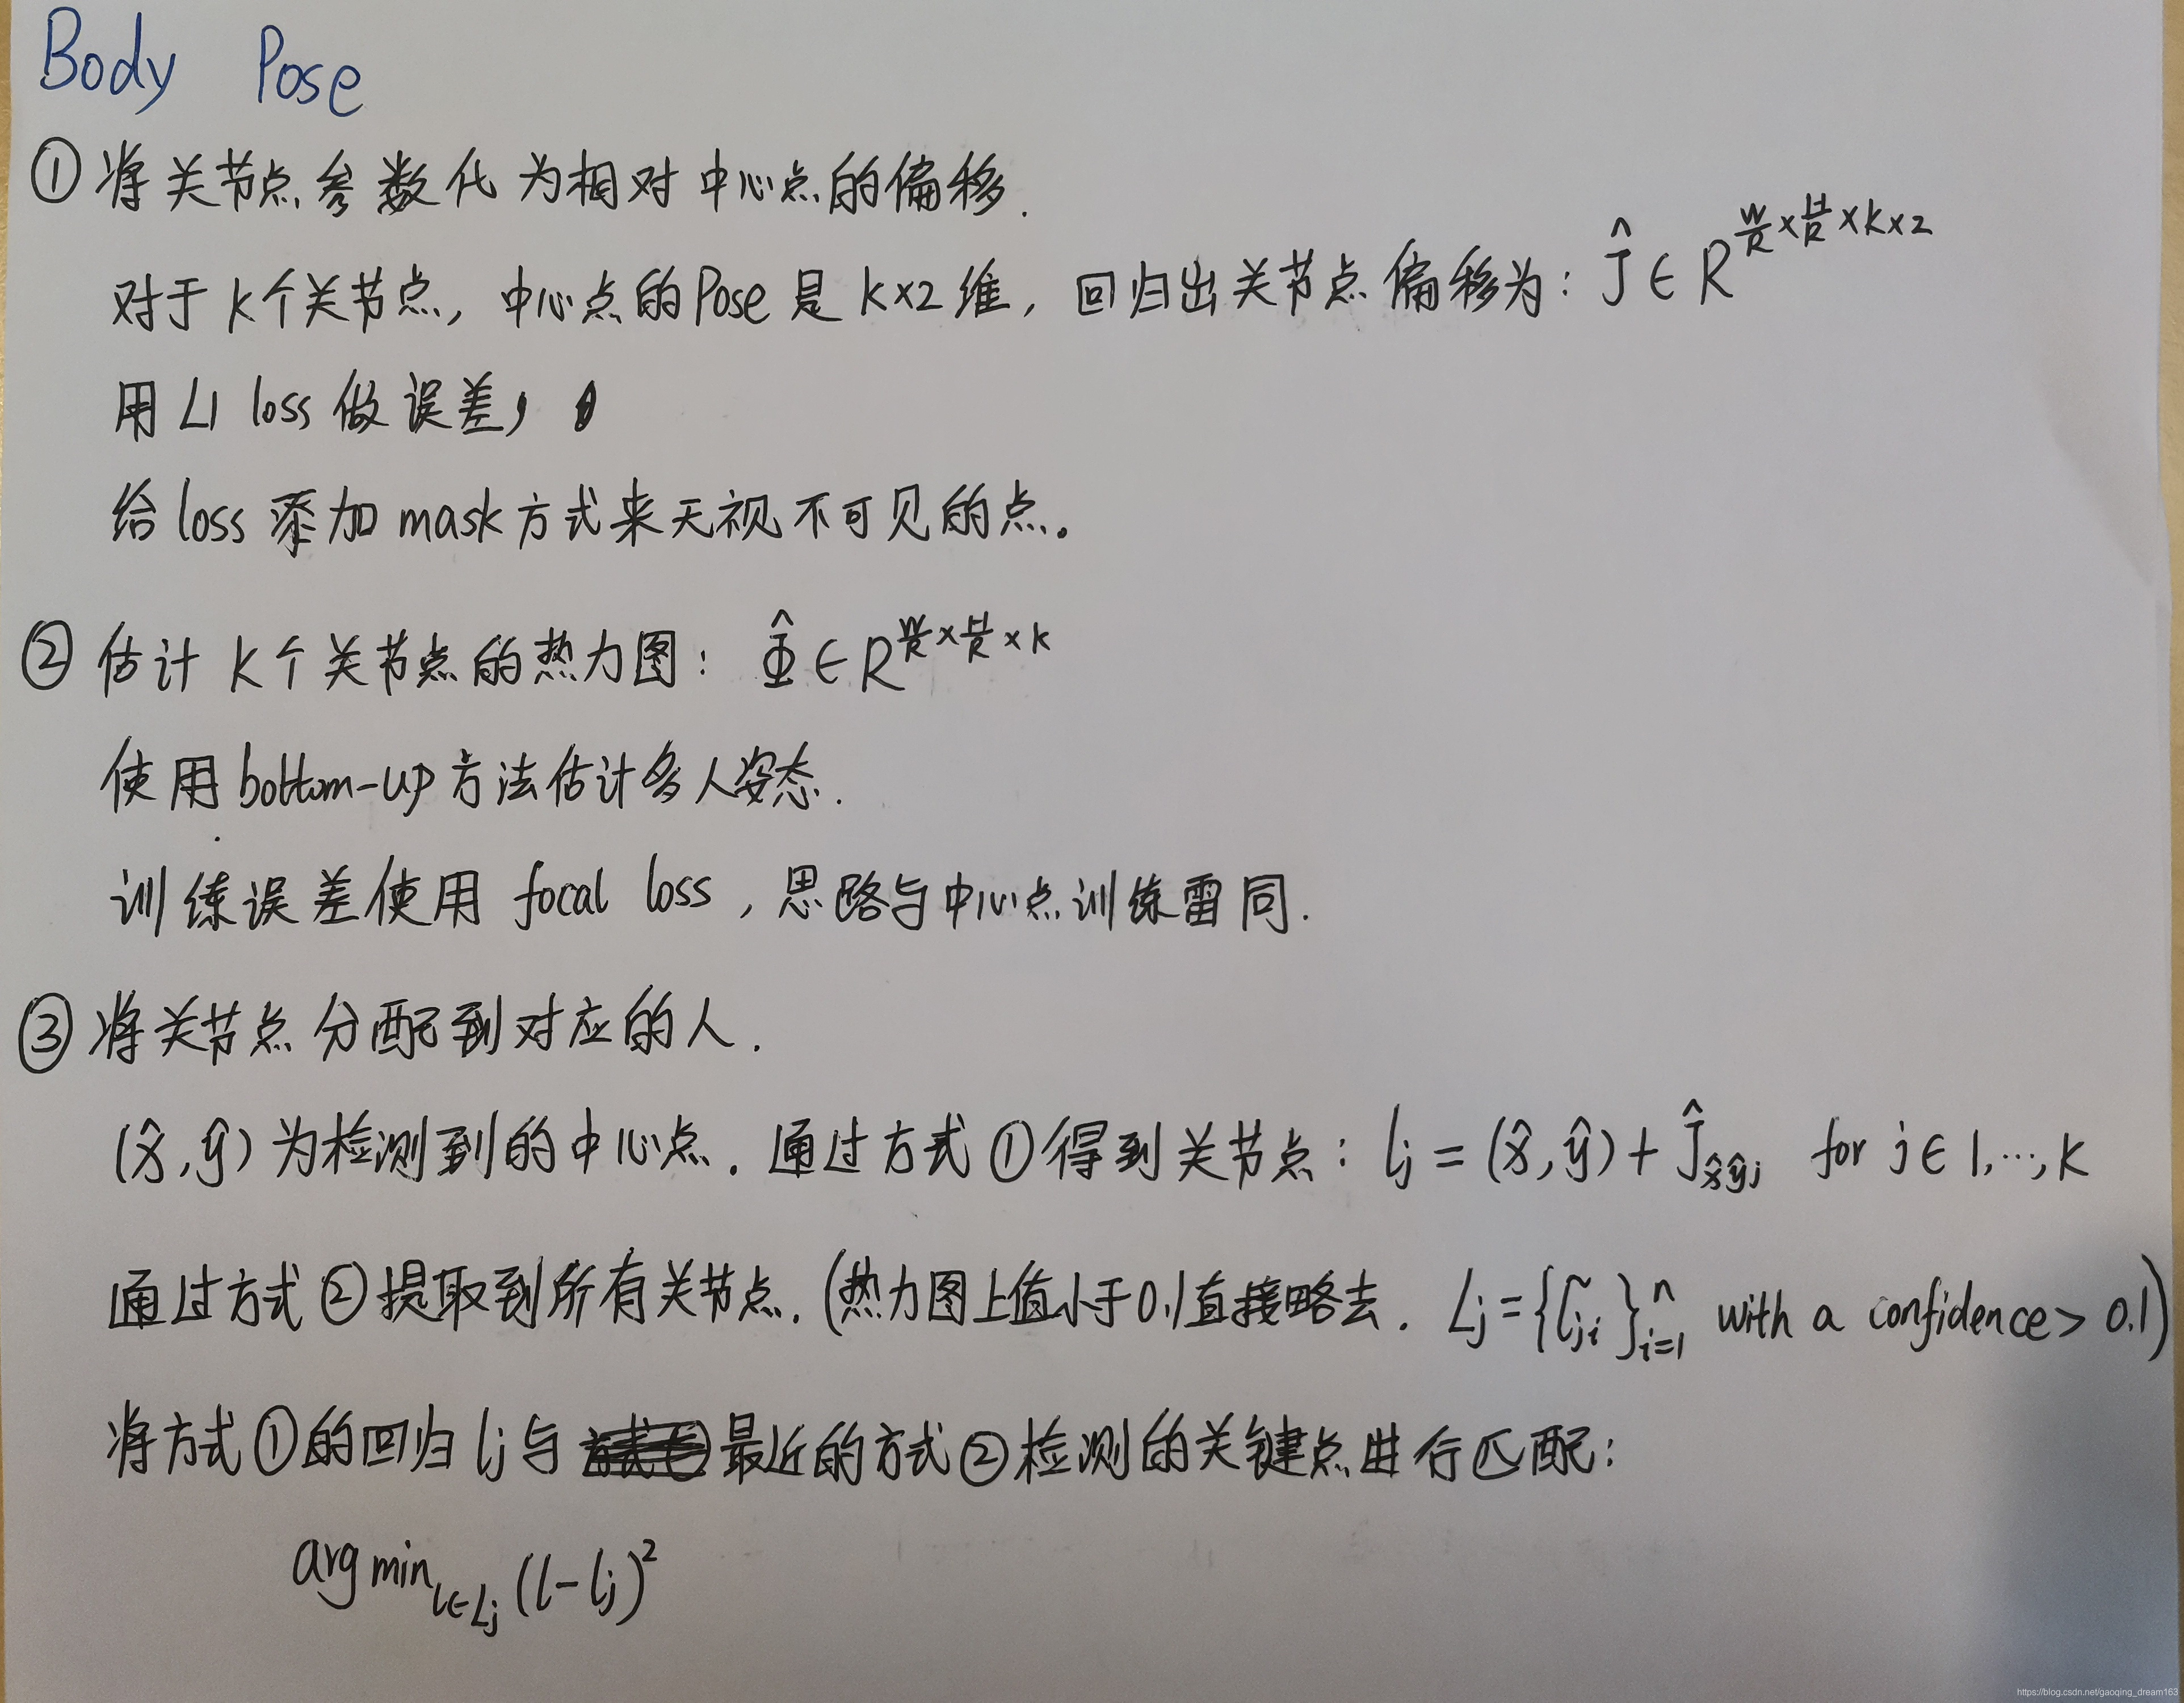 Body Pose
① 将关节点参数化为相对中心点的偏移.
对于k个关节点, 中心点的Pose是k×2维, 回归出关节点偏移为: Ĵ ∈ R^{W/R × H/R × k × 2}
用L1 loss做误差,
给loss添加mask方式来无视不可见的点。
② 估计k个关节点的热力图: Φ̂ ∈ R^{W/R × H/R × k}
使用bottom-up方法估计多人姿态.
训练误差使用 focal loss, 思路与中心点训练雷同.
③ 将关节点分配到对应的人.
(x̂, ŷ) 为检测到的中心点. 通过方式①得到关节点: lj = (x̂, ŷ) + Ĵ_{x̂ŷj} for j ∈ 1,…,k
通过方式②提取到所有关节点. (热力图上值小于0.1直接略去. Lj = {l̃_{ji}}_{i=1}^{n} with a confidence > 0.1)
将方式①的回归lj与最近的方式②检测的关键点进行匹配:
arg min_{l∈Lj} (l - lj)²
https://blog.csdn.net/gaoqing_dream163